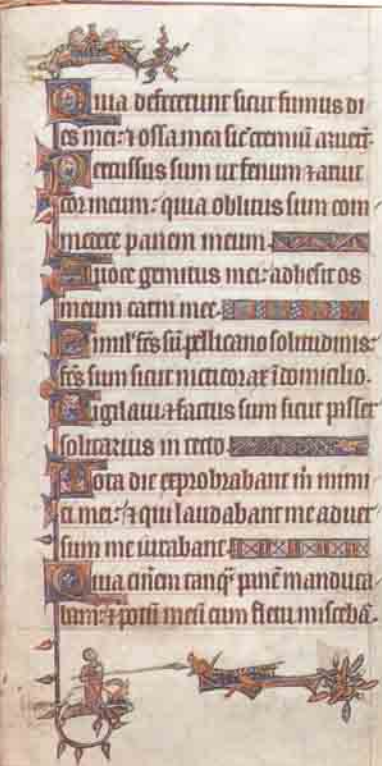 Quia defecerunt sicut fumus di
es mei: ⁊ ossa mea sic̄ cremiū aruerūt.
Percussus sum ut fenum ⁊ aruit
cor meum: quia oblitus sum com
medere panem meum.
A uoce gemitus mei: adhesit os
meum carni mee.
Simil' fc̄s sū pellicano solitudinis:
fc̄s sum sicut nicticorax ī domicilio.
Uigilaui ⁊ factus sum sicut passer
solitarius in tecto.
Tota die exprobrabant m̄ inimi
ci mei: ⁊ qui laudabant me aduer
sum me iurabant.
Quia cinē̄m tanq̄ panē manduca
bam: ⁊ potū meū cum fletu miscebā.